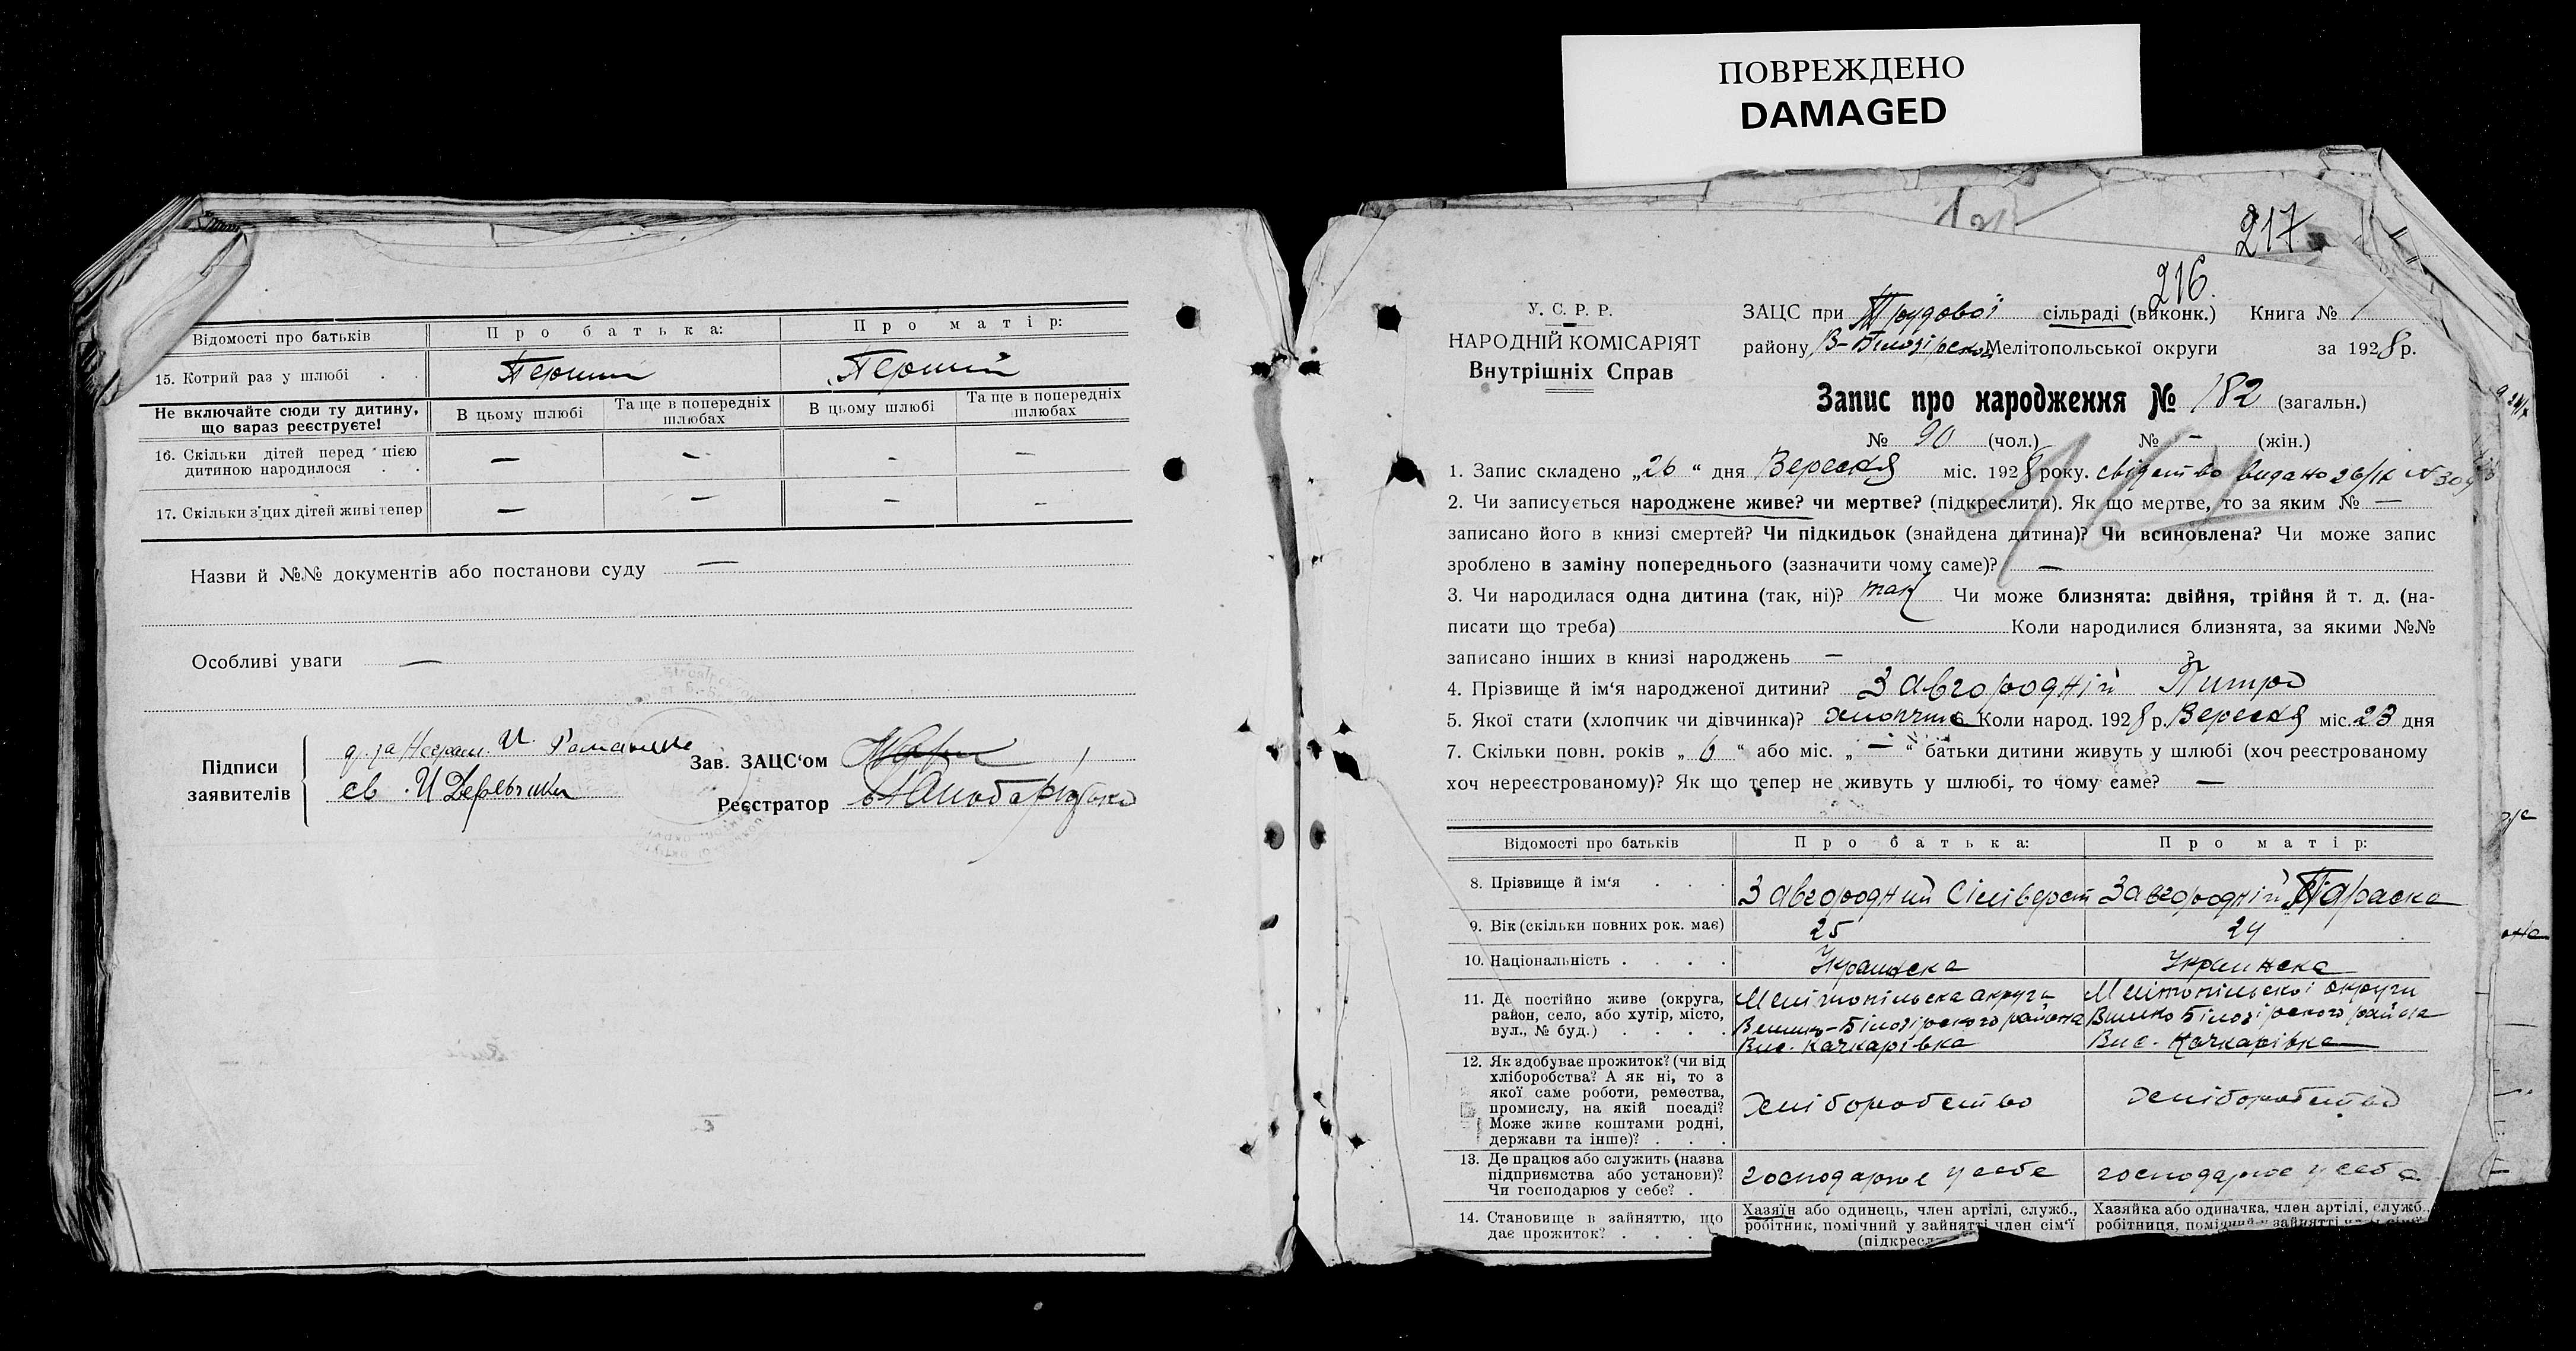 ПОВРЕЖДЕНО
DAMAGED
Відомості про батьків
Про батька:
Про матір:
15. Котрий раз у шлюбі . .
Перший
Перший
Не включайте сюди ту дитину, що вараз реєструєте!
В цьому шлюбі
Та ще в попередніх шлюбах
В цьому шлюбі
Та ще в попередніх шлюбах
16. Скільки дітей перед цією
дитиною народилося . .
— — - —
17. Скільки з'цих дітей живі тепер
— — — -
Назви й №№ документів або постанови суду —
Особливі уваги —
Підписи
заявителів
св. И Деревянки
Зав. ЗАЦС'ом
Реєстратор
217
216.
У. С. Р. Р.
НАРОДНІЙ КОМІСАРІЯТ
Внутрішніх Справ
ЗАЦС при Трудової сільраді (виконк.) Книга № 1
району В-Білозірської Мелітопольської округи за 1928 р.
Запис про народження № 182 (загальн.)
№ 90 (чол.) № - (жін.)
1. Запис складено „26“ дня Вересня міс. 1928 року. свідетво видано 26/IX №
2. Чи записується народжене живе? чи мертве? (підкреслити). Як що мертве, то за яким № —
записано його в книзі смертей? Чи підкидьок (знайдена дитина)? Чи всиновлена? Чи може запис
зроблено в заміну попереднього (зазначити чому саме)? —
3. Чи народилася одна дитина (так, ні)? так Чи може близнята: двійня, трійня й т. д. (на-
писати що треба) Коли народилися близнята, за якими №№
записано інших в книзі народжень —
4. Прізвище й ім'я народженої дитини? Завгородній Питро
5. Якої стати (хлопчик чи дівчинка)? хлопчик Коли народ. 1928 р. Вересня міс. 23 дня
7. Скільки повн. років „6“ або міс. „—“ батьки дитини живуть у шлюбі (хоч реєстрованому
хоч нереєстрованому)? Як що тепер не живуть у шлюбі, то чому саме? —
Відомості про батьків
Про батька:
Про матір:
8. Прізвище й ім'я . . .
Завгородний Сіліверст
Завгородній Підраска
9. Вік (скільки повних рок. має)
25
24
10. Національність . . . .
Украинска
Украинска
11. Де постійно живе (округа,
район, село, або хутір, місто,
вул., № буд.) . . . .
Мелітопільска округа
Велико-Білозірского района
Вис. Качкарівка
Мелітопільскої округи
Велико Білозірского района
Вис. Качкарівка
12. Як здобуває прожиток? (чи від
хліборобства? А як ні, то з
якої саме роботи, ремества,
промислу, на якій посаді?
Може живе коштами родні,
держави та інше)? . . .
хліборобство
хліборобство
13. Де працює або служить (назва
підприємства або установи)?
Чи господарює у себе? .
господарює у себе
господарює у себе
14. Становище в зайняттю, що
дає прожиток? . . . .
Хазяїн або одинець, член артілі, служб.,
робітник, помічний у зайнятті член сім'ї
Хазяйка або одиначка, член артілі, служб.,
робітниця,